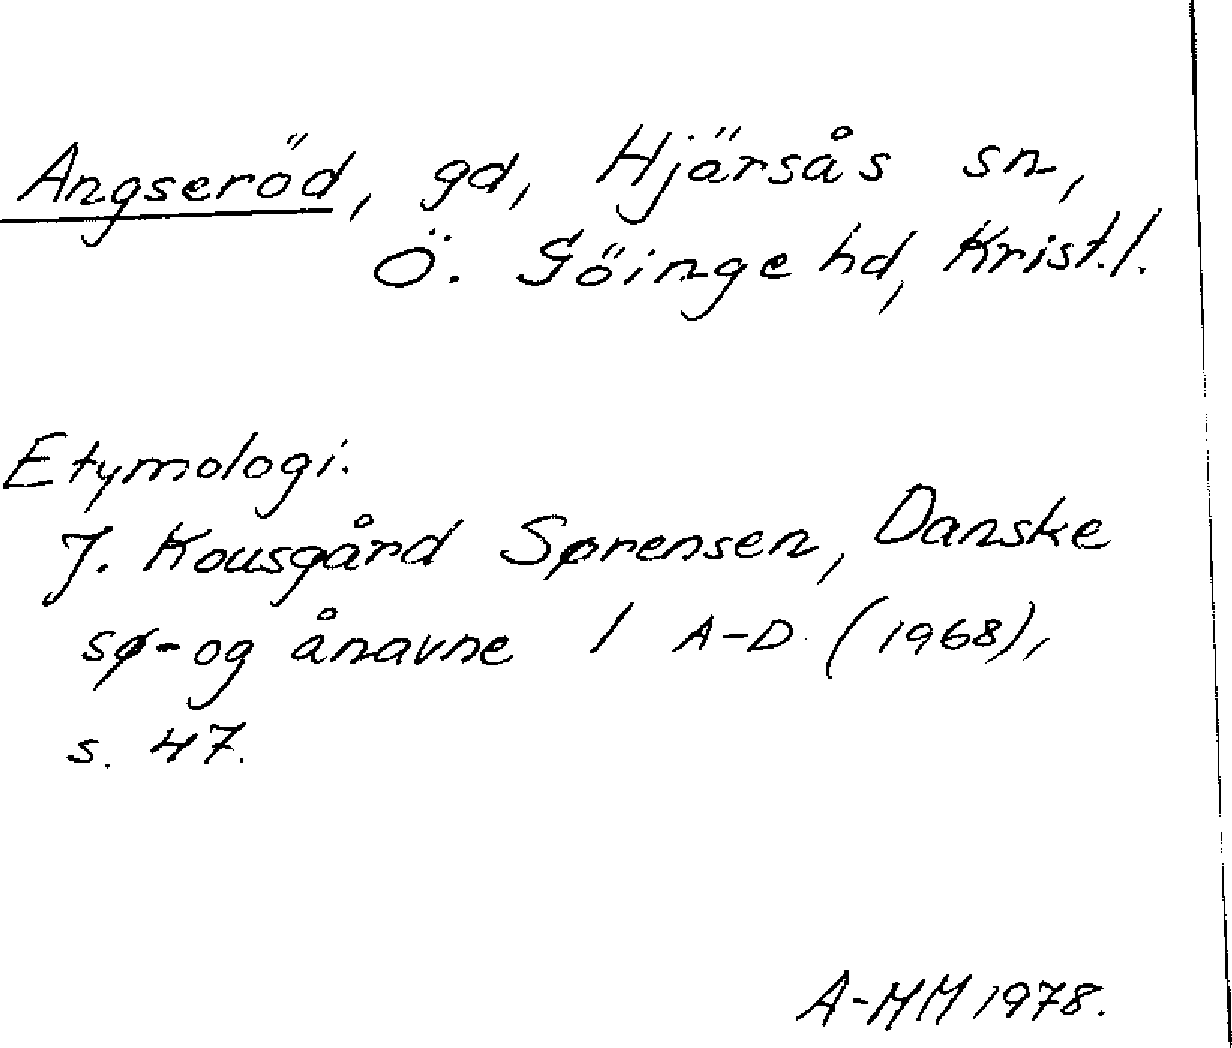 Angseröd, gd, Hjärsås sn,
Ö. Göinge hd, Krist.l.
Etymologi.
J. Kousgård Sørensen, Danske
sø- og ånavne 1 A-D. (1968),
s. 47.
A-MM 1978.